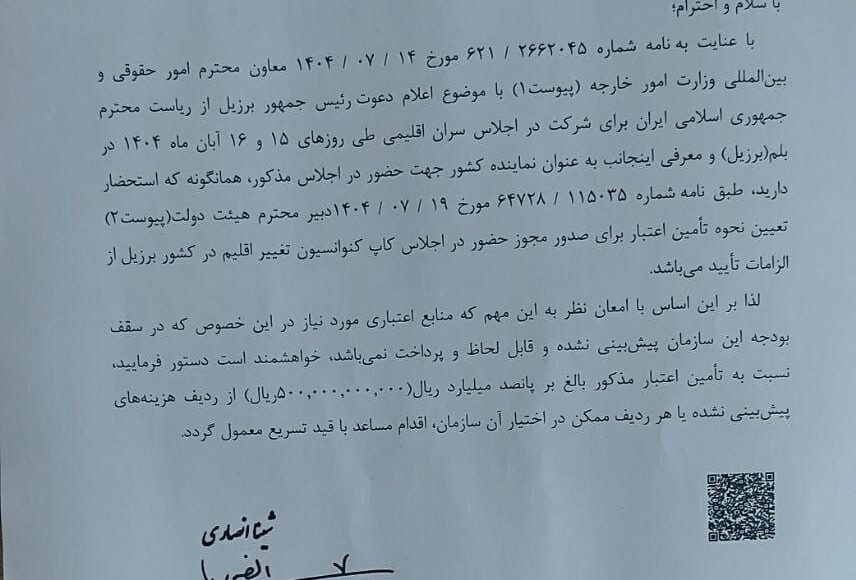 با سلام و احترام؛
با عنایت به نامه شماره ۲۶۶۲۰۴۵ / ۶۲۱ مورخ ۱۴ / ۰۷ / ۱۴۰۴ معاون محترم امور حقوقی و
بین‌المللی وزارت امور خارجه (پیوست۱) با موضوع اعلام دعوت رئیس جمهور برزیل از ریاست محترم
جمهوری اسلامی ایران برای شرکت در اجلاس سران اقلیمی طی روزهای ۱۵ و ۱۶ آبان ماه ۱۴۰۴ در
بلم(برزیل) و معرفی اینجانب به عنوان نماینده کشور جهت حضور در اجلاس مذکور، همانگونه که استحضار
دارید، طبق نامه شماره ۱۱۵۰۳۵ / ۶۴۷۲۸ مورخ ۱۹ / ۰۷ / ۱۴۰۴دبیر محترم هیئت دولت(پیوست۲)
تعیین نحوه تأمین اعتبار برای صدور مجوز حضور در اجلاس کاپ کنوانسیون تغییر اقلیم در کشور برزیل از
الزامات تأیید می‌باشد.
لذا بر این اساس با امعان نظر به این مهم که منابع اعتباری مورد نیاز در این خصوص که در سقف
بودجه این سازمان پیش‌بینی نشده و قابل لحاظ و پرداخت نمی‌باشد، خواهشمند است دستور فرمایید،
نسبت به تأمین اعتبار مذکور بالغ بر پانصد میلیارد ریال(۵۰۰,۰۰۰,۰۰۰,۰۰۰ریال) از ردیف هزینه‌های
پیش‌بینی نشده یا هر ردیف ممکن در اختیار آن سازمان، اقدام مساعد با قید تسریع معمول گردد.
شینا انصاری